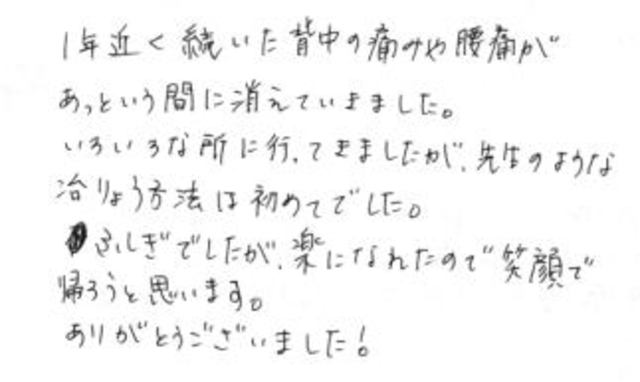 1年近く続いた背中の痛みや腰痛が
あっという間に消えていきました。
いろいろな所に行ってきましたが、先生のような
治りょう方法は初めてでした。
ふしぎでしたが、楽になれたので笑顔で
帰ろうと思います。
ありがとうございました!